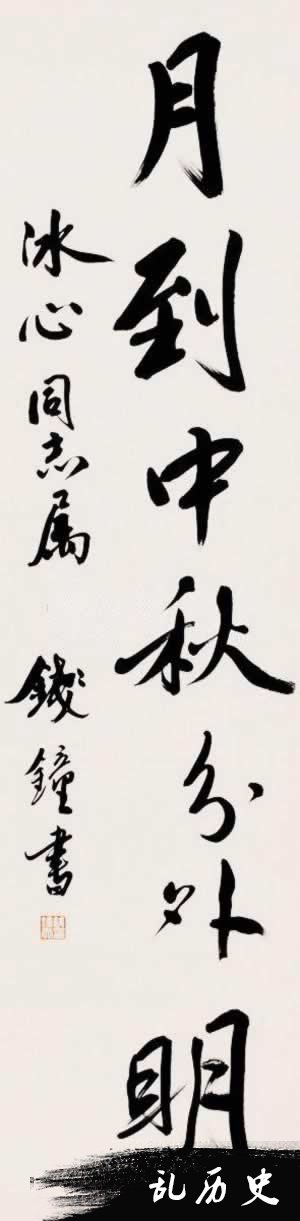 月到中秋分外明
冰心同志属 錢鐘書
乱历史